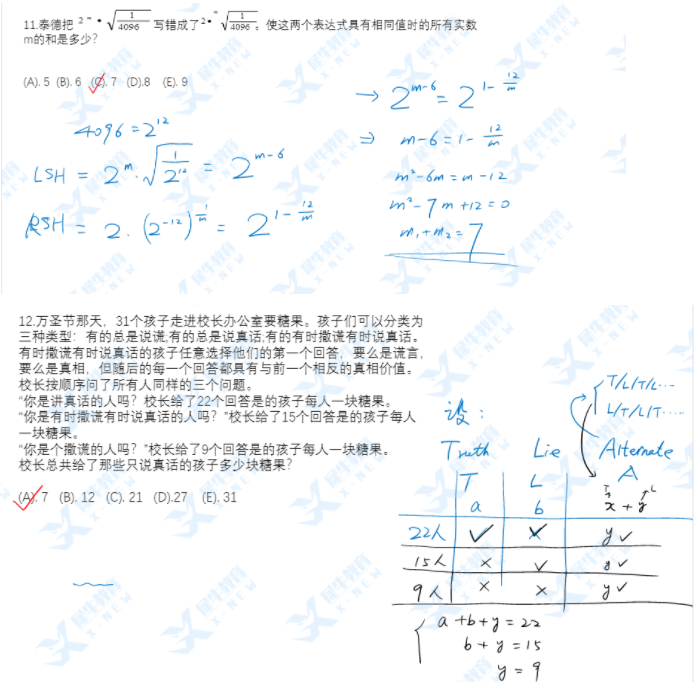 11.泰德把 2ᵐ•√(1/4096) 写错成了2•ᵐ√(1/4096)。使这两个表达式具有相同值时的所有实数
m的和是多少?
(A). 5 (B). 6 (C). 7 (D).8 (E). 9
4096 = 2¹²
LSH = 2ᵐ·√(1/2¹²) = 2^(m-6)
RSH = 2.(2⁻¹²)^(1/m) = 2^(1-12/m)
→ 2^(m-6) = 2^(1-12/m)
⇒ m-6 = 1-12/m
m²-6m = m-12
m²-7m+12=0
m₁+m₂=7
12.万圣节那天，31个孩子走进校长办公室要糖果。孩子们可以分类为
三种类型：有的总是说谎;有的总是说真话;有的有时撒谎有时说真话。
有时撒谎有时说真话的孩子任意选择他们的第一个回答，要么是谎言，
要么是真相，但随后的每一个回答都具有与前一个相反的真相价值。
校长按顺序问了所有人同样的三个问题。
“你是讲真话的人吗？校长给了22个回答是的孩子每人一块糖果。
“你是有时撒谎有时说真话的人吗？”校长给了15个回答是的孩子每人
一块糖果。
“你是个撒谎的人吗？”校长给了9个回答是的孩子每人一块糖果。
校长总共给了那些只说真话的孩子多少块糖果？
(A). 7 (B). 12 (C). 21 (D).27 (E). 31
设：
T/L/T/L…
L/T/L/T…
Truth Lie Alternate
T L A
T L
a b x + y
22人 ✓ ✗ y ✓
15人 × ✓ ✓
9人 × × y ✓
a + b + y = 22
b + y = 15
y = 9
犀牛教育
X-NEW